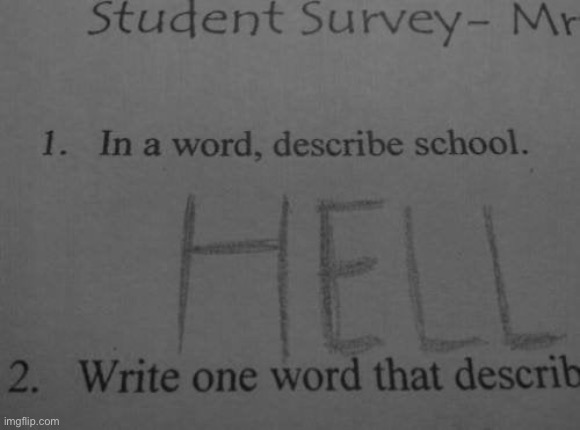 Student Survey- Mr
1. In a word, describe school.
HELL
2. Write one word that describ
imgflip.com